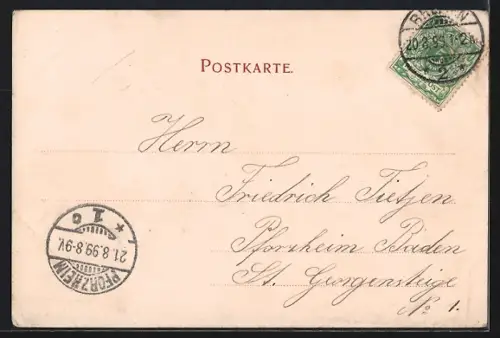 POSTKARTE.
BREMEN
20.8.99
* 2 *
Herrn
Friedrich Tietjen
Pforzheim Baden
St. Georgensteige
No 1.
* 1 c
21.8.99.8-9V.
PFORZHEIM